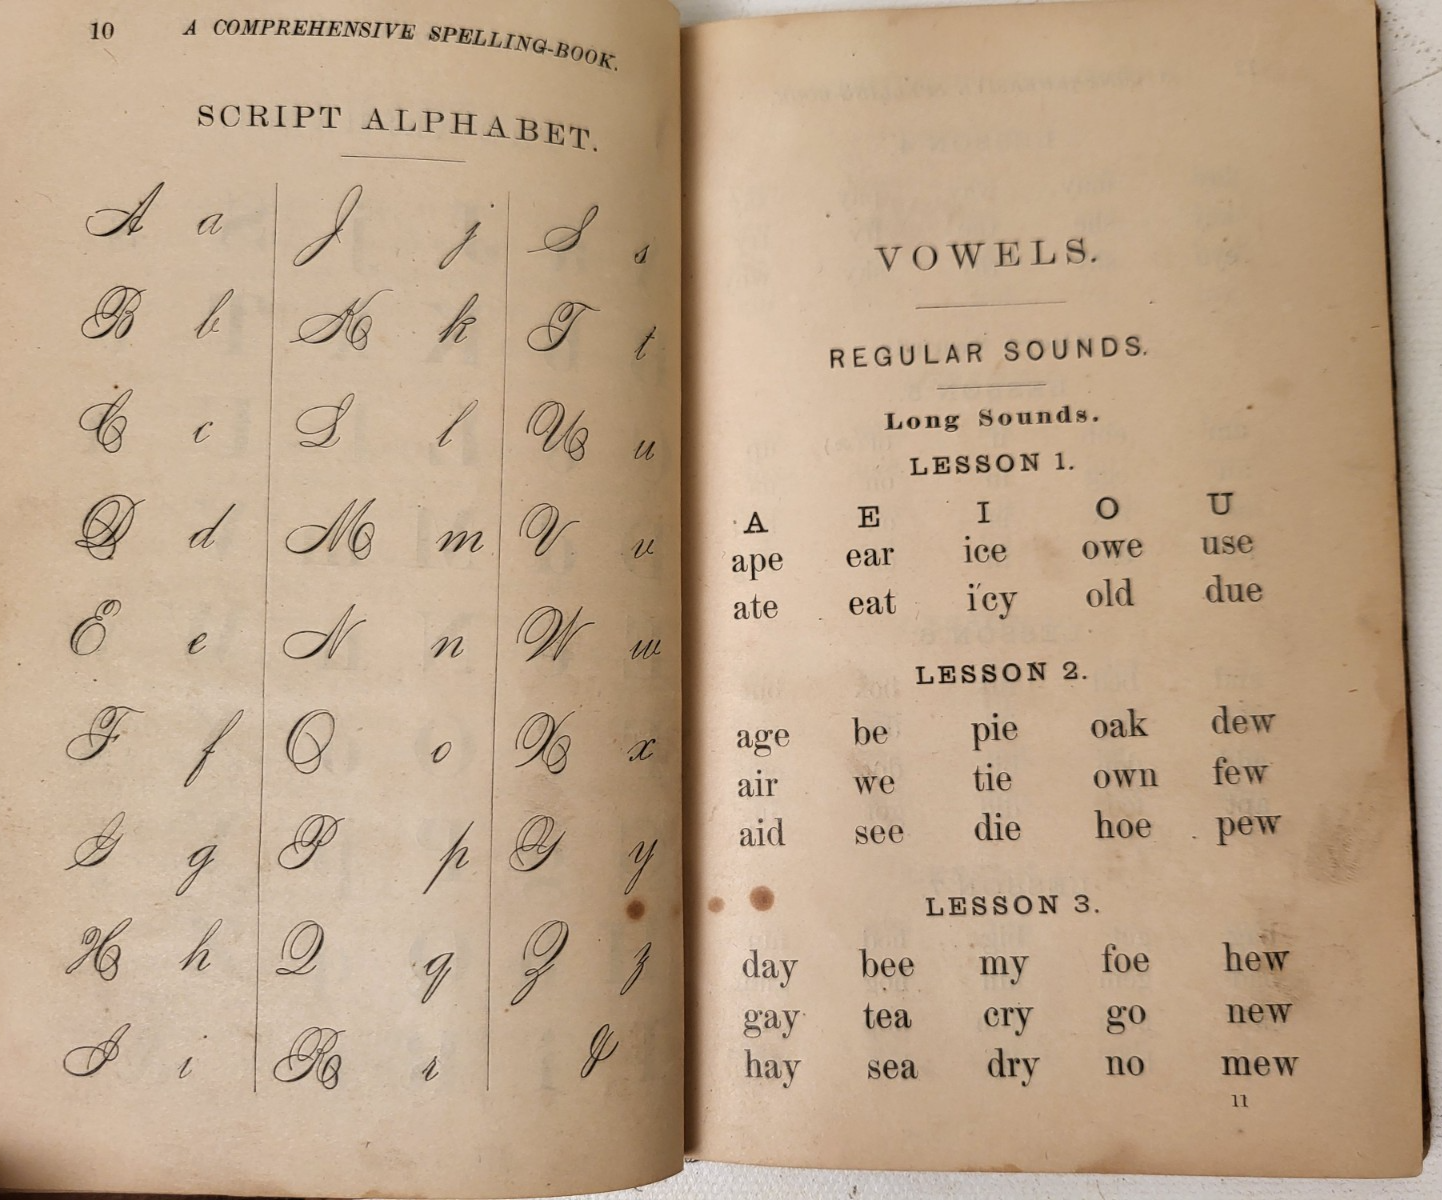 10 A COMPREHENSIVE SPELLING-BOOK.
SCRIPT ALPHABET.
A a J j S s
B b K k T t
C c L l U u
D d M m V v
E e N n W w
F f O o X x
G g P p Y y
H h Q q Z z
I i R r &
VOWELS.
REGULAR SOUNDS.
Long Sounds.
LESSON 1.
A E I O U
ape ear ice owe use
ate eat i'cy old due
LESSON 2.
age be pie oak dew
air we tie own few
aid see die hoe pew
LESSON 3.
day bee my foe hew
gay tea cry go new
hay sea dry no mew
11